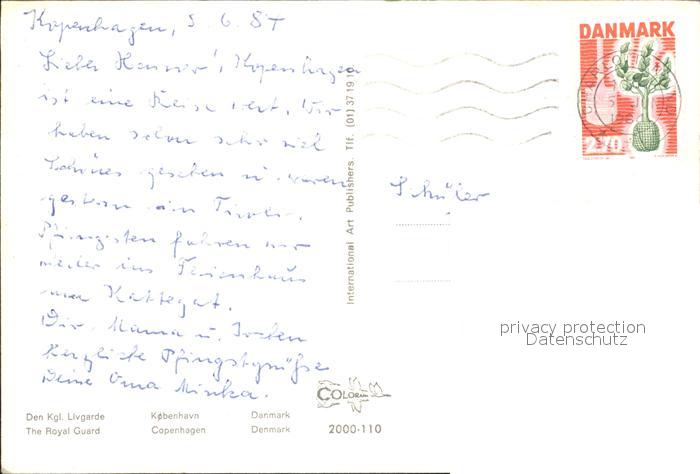 Kopenhagen, 5.6.87
Lieber Henner! Kopenhagen
ist eine Reise wert. Wir
haben schon sehr viel
Schönes gesehen u. waren
gestern im Tivoli.
Pfingsten fahren wir
wieder ins Ferienhaus
am Kattegat.
Dir, Mama u.
herzliche Pfingstgrüße
Deine Oma Minka.
Schüler
DANMARK
2.70
International Art Publishers. Tlf. (01) 3719
privacy protection
Datenschutz
COLOR
Den Kgl. Livgarde København Danmark
The Royal Guard Copenhagen Denmark
2000-110